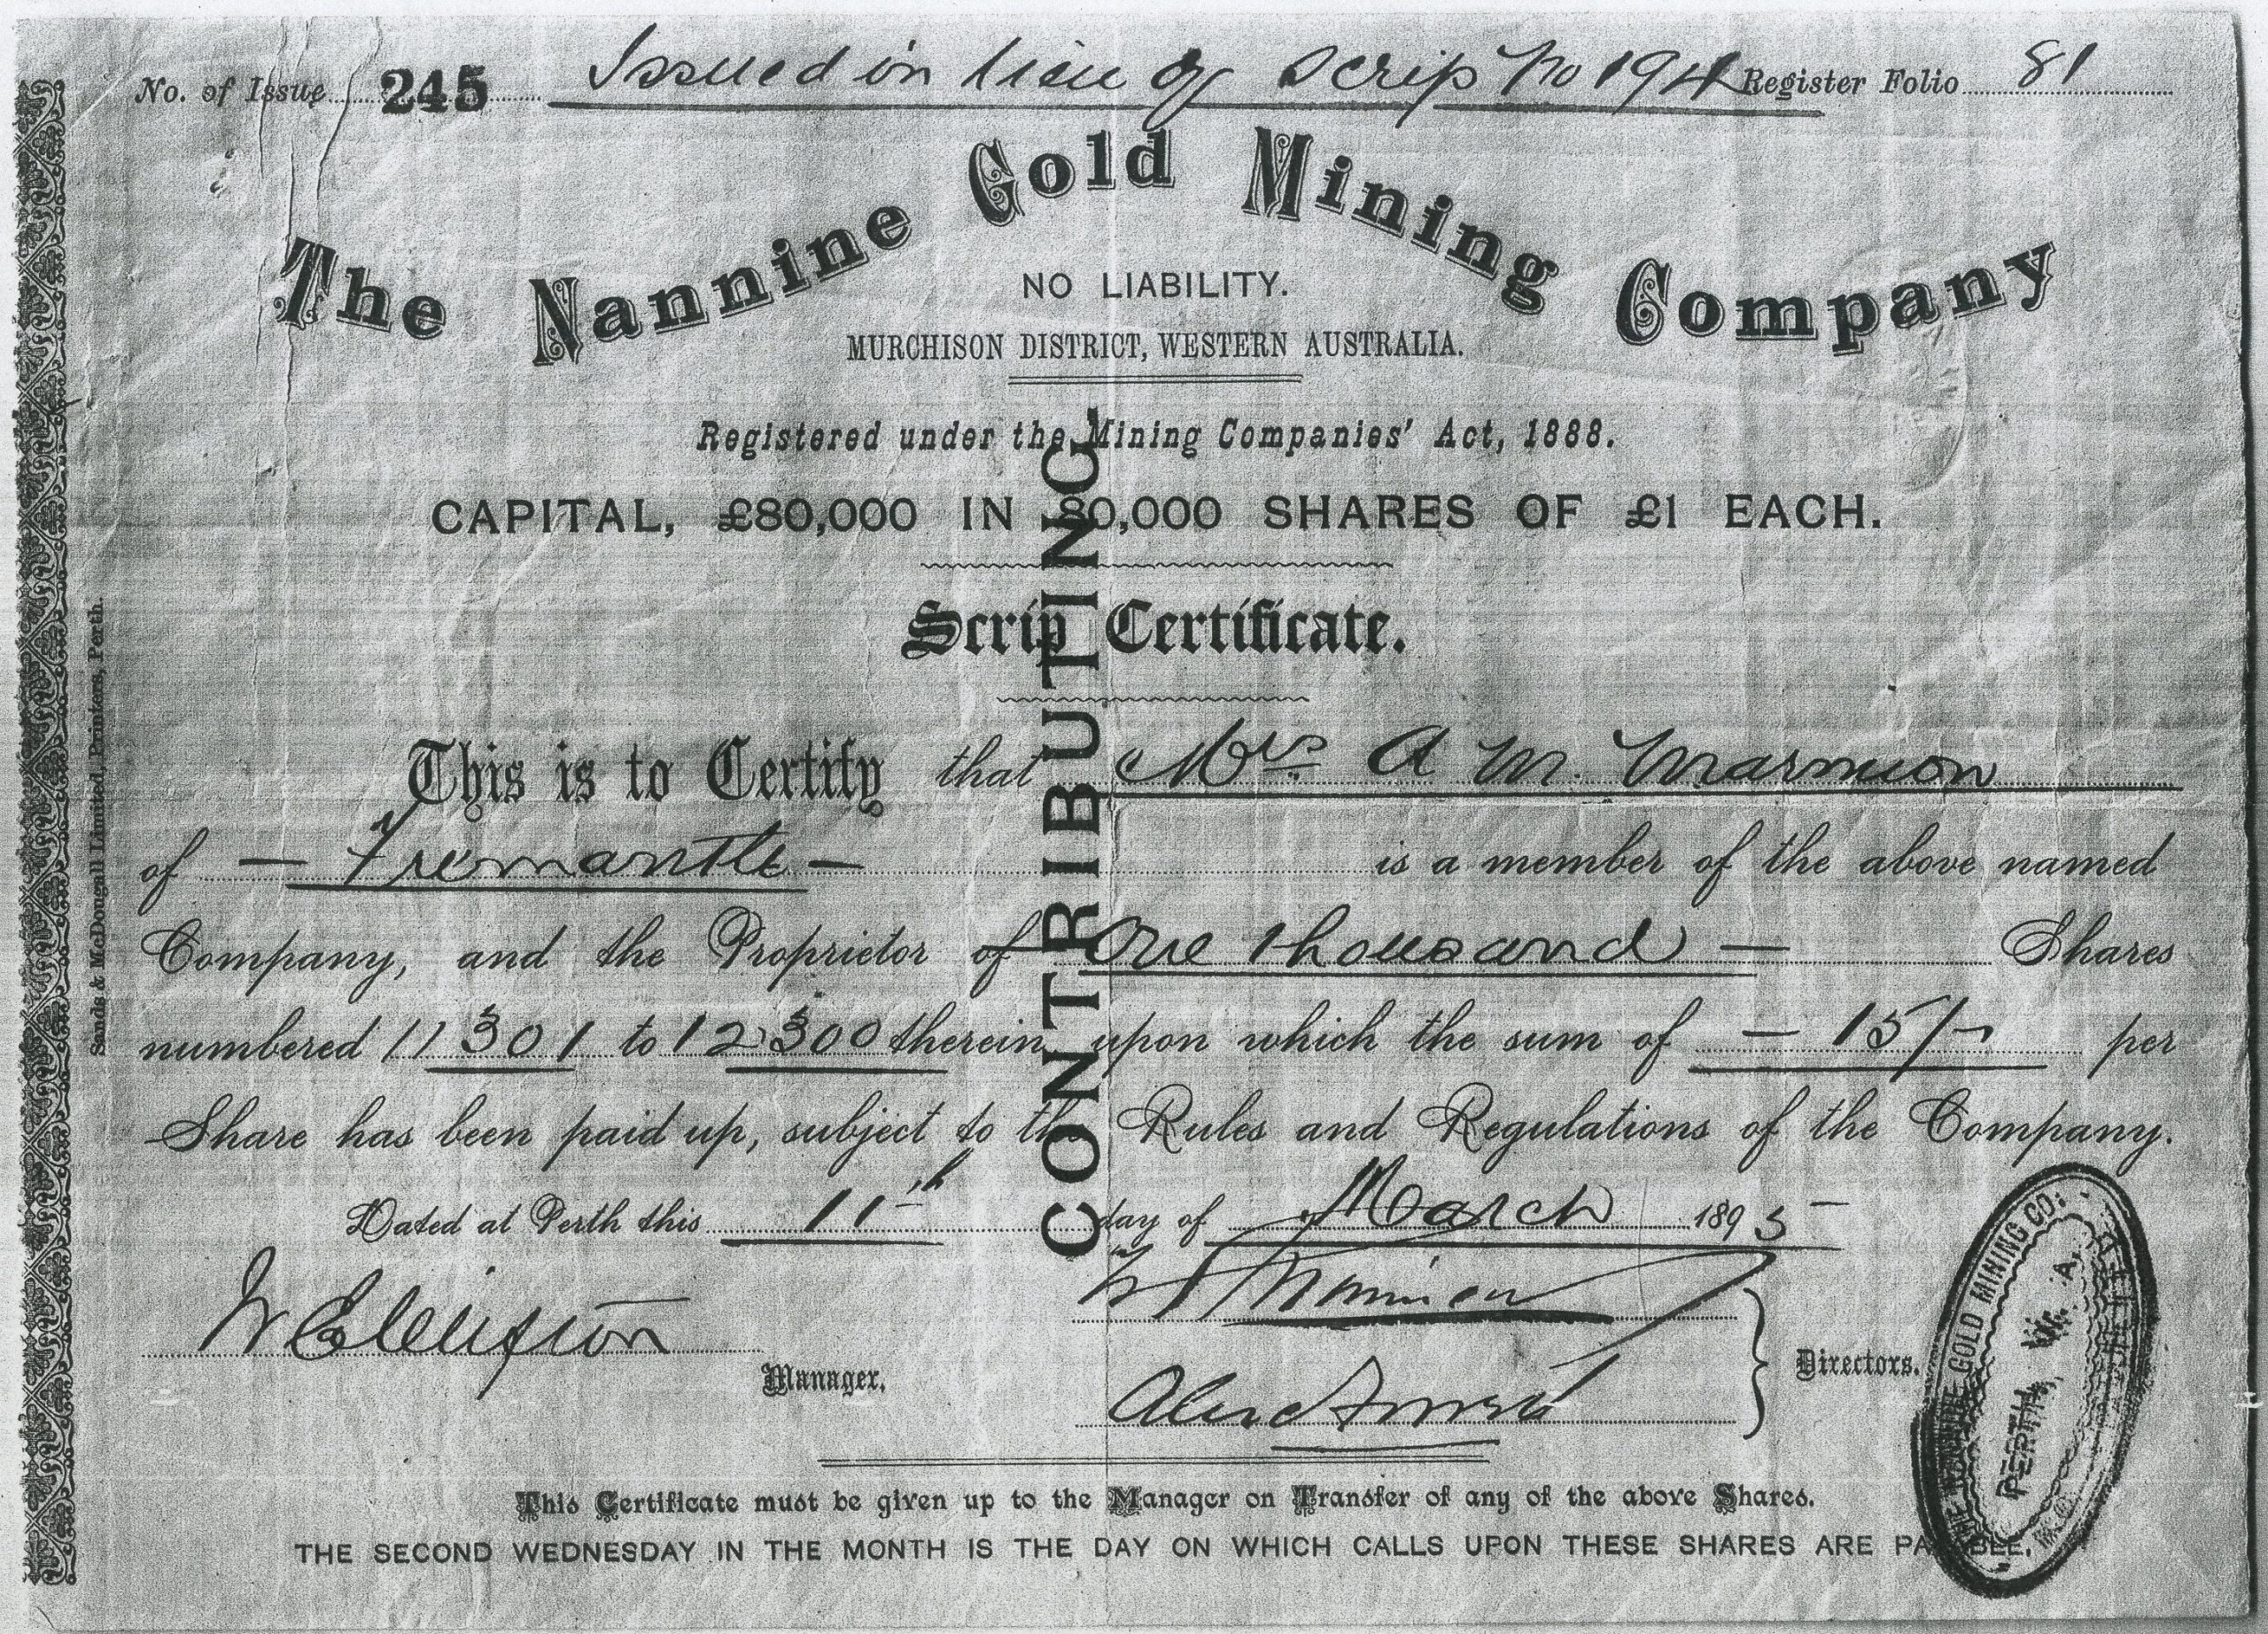 No. of Issue 245 Issued in lieu of Scrip No 194 Register Folio 81
The Nannine Gold Mining Company
NO LIABILITY.
MURCHISON DISTRICT, WESTERN AUSTRALIA.
Registered under the Mining Companies' Act, 1888.
CAPITAL, £80,000 IN 80,000 SHARES OF £1 EACH.
Scrip Certificate.
CONTRIBUTING
This is to Certify that Mrs A M. Marmion
of — Fremantle — is a member of the above named
Company, and the Proprietor of One thousand — Shares
numbered 11301 to 12300 therein upon which the sum of — 15/- per
Share has been paid up, subject to the Rules and Regulations of the Company.
Dated at Perth this 11th day of March 1895
Marmion
Manager.
Directors.
This Certificate must be given up to the Manager on Transfer of any of the above Shares.
THE SECOND WEDNESDAY IN THE MONTH IS THE DAY ON WHICH CALLS UPON THESE SHARES ARE PAYABLE.
Sands & McDougall Limited, Printers, Perth.
THE NANNINE GOLD MINING CO:
PERTH, W. A.